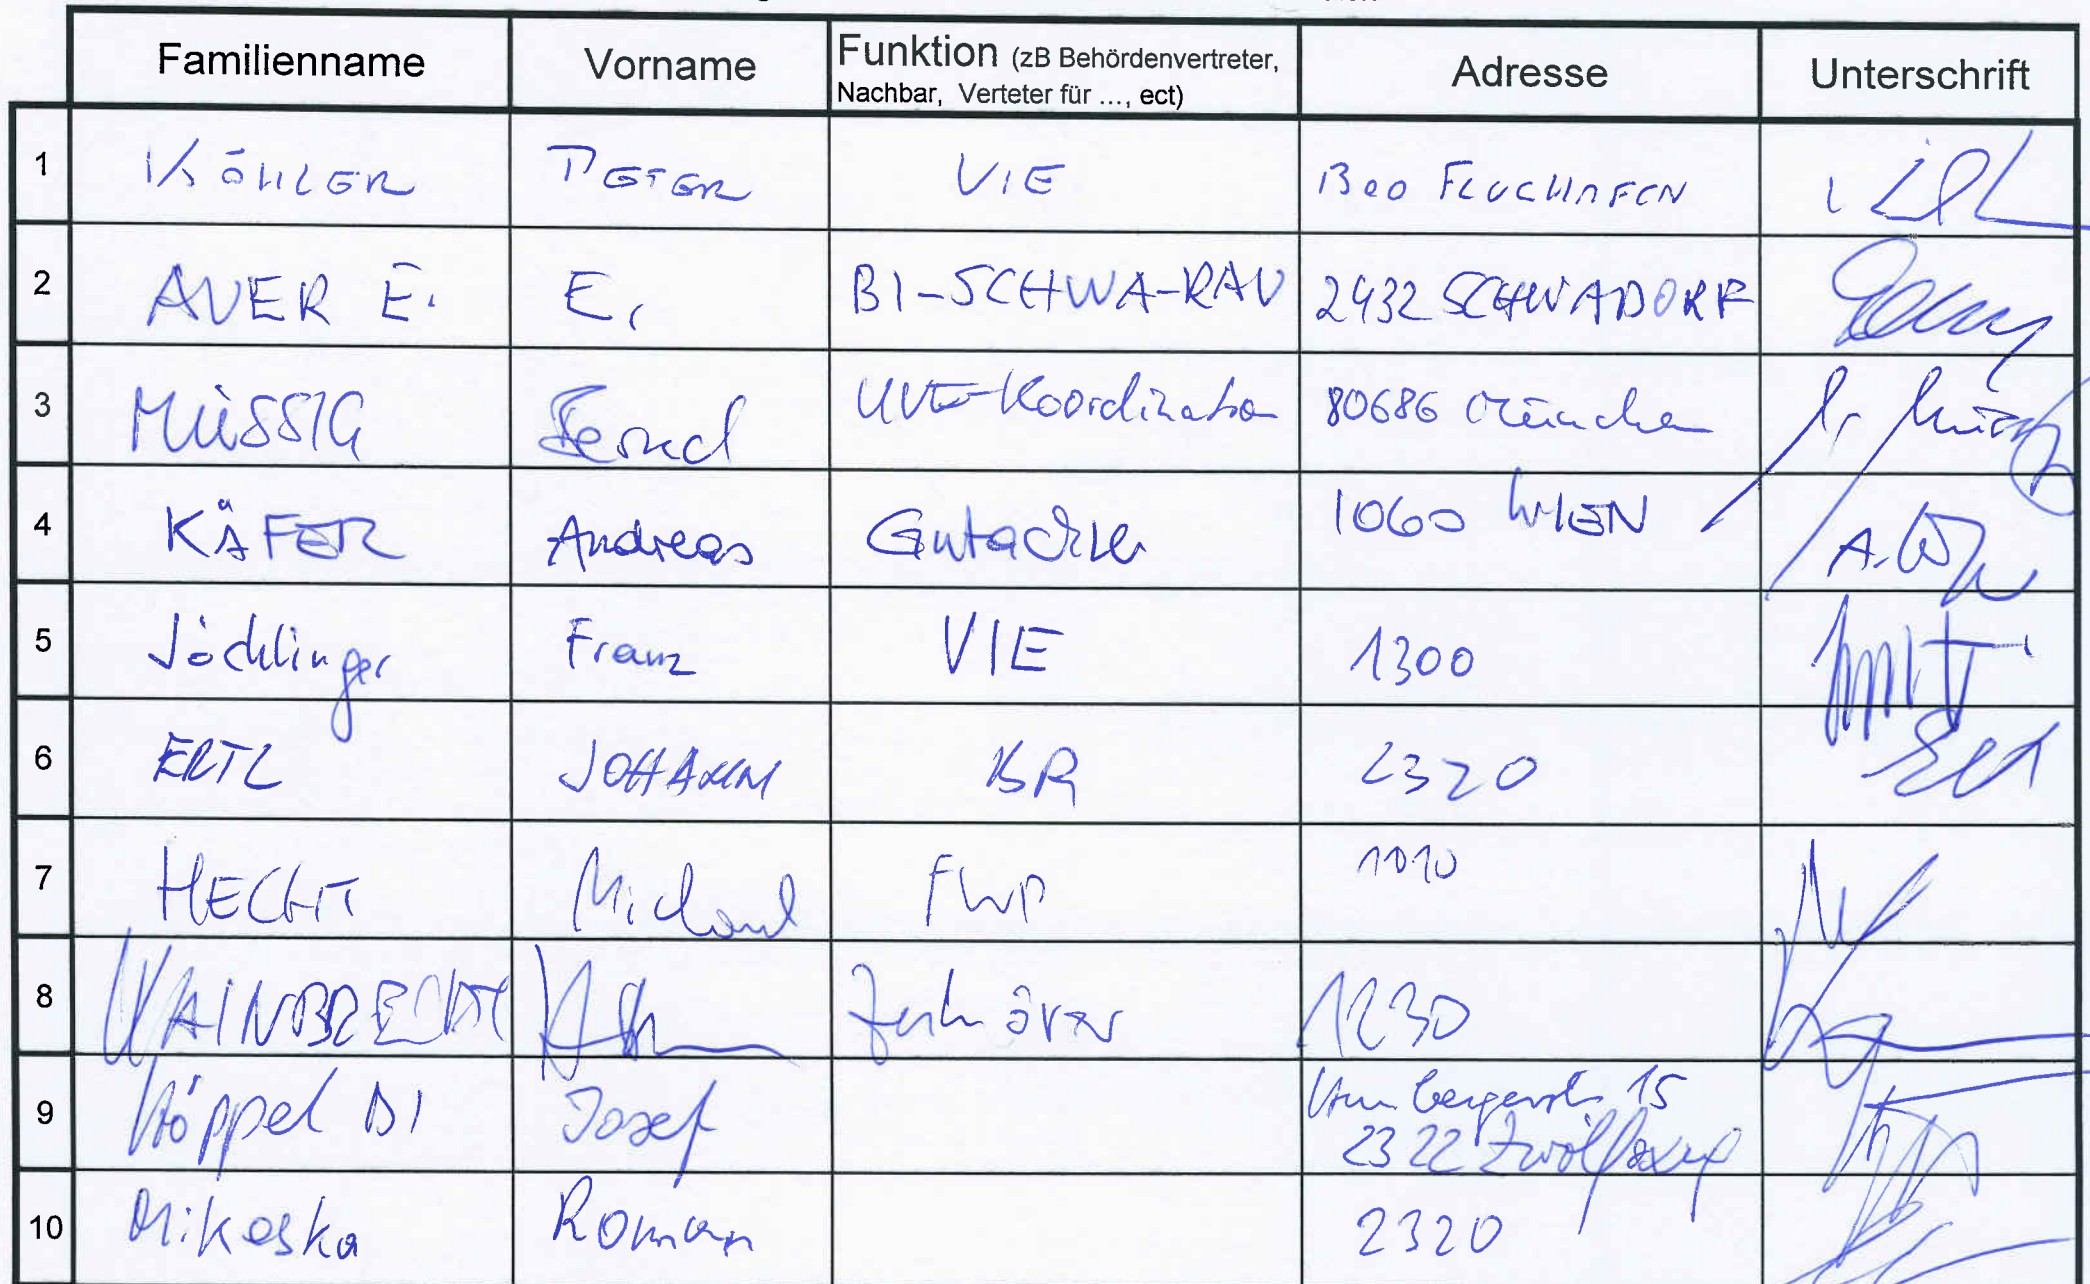 Familienname Vorname Funktion (zB Behördenvertreter, Nachbar, Verteter für ..., ect) Adresse Unterschrift
1 KÖHLER PETER VIE 1300 FLUGHAFEN
2 AUER E. E. BI-SCHWA-RAU 2432 SCHWADORF
3 MÜSSIG Bernd UVE-Koordination 80686 München
4 KÄFER Andreas Gutachter 1060 WIEN
5 Jöchlinger Franz VIE 1300
6 ERTL JOHANN BR 2320
7 HECHT Michael FWP 1010
8 1230
9 Höppel DI Josef 15
2322 Zwölfaxing
10 Mikoska Roman 2320